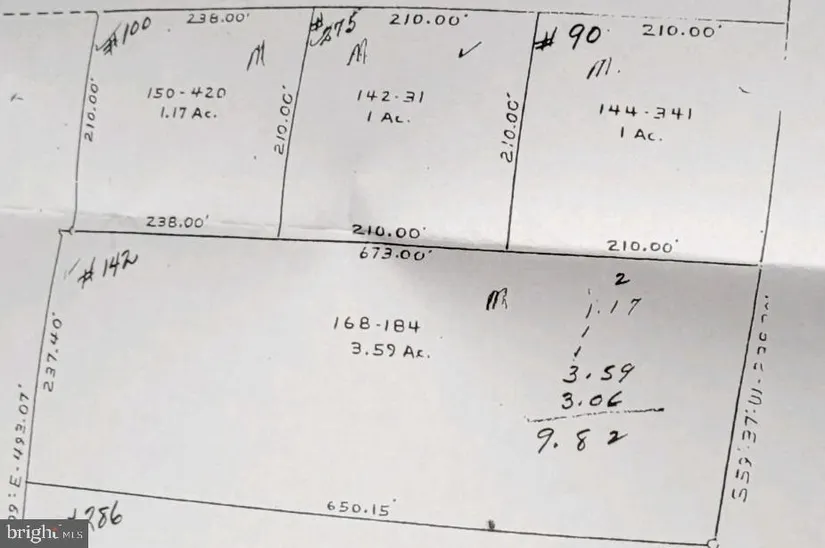 #100
238.00'
#275
210.00'
#90
210.00'
M
M
M.
150-420
1.17 Ac.
142-31
1 Ac.
144-341
1 Ac.
210.00'
210.00'
210.00'
238.00'
210.00'
210.00'
673.00'
#142
M
2
1.17
1
1
3.59
3.06
9.82
168-184
3.59 Ac.
237.40'
E-493.07'
650.15'
286
bright MLS